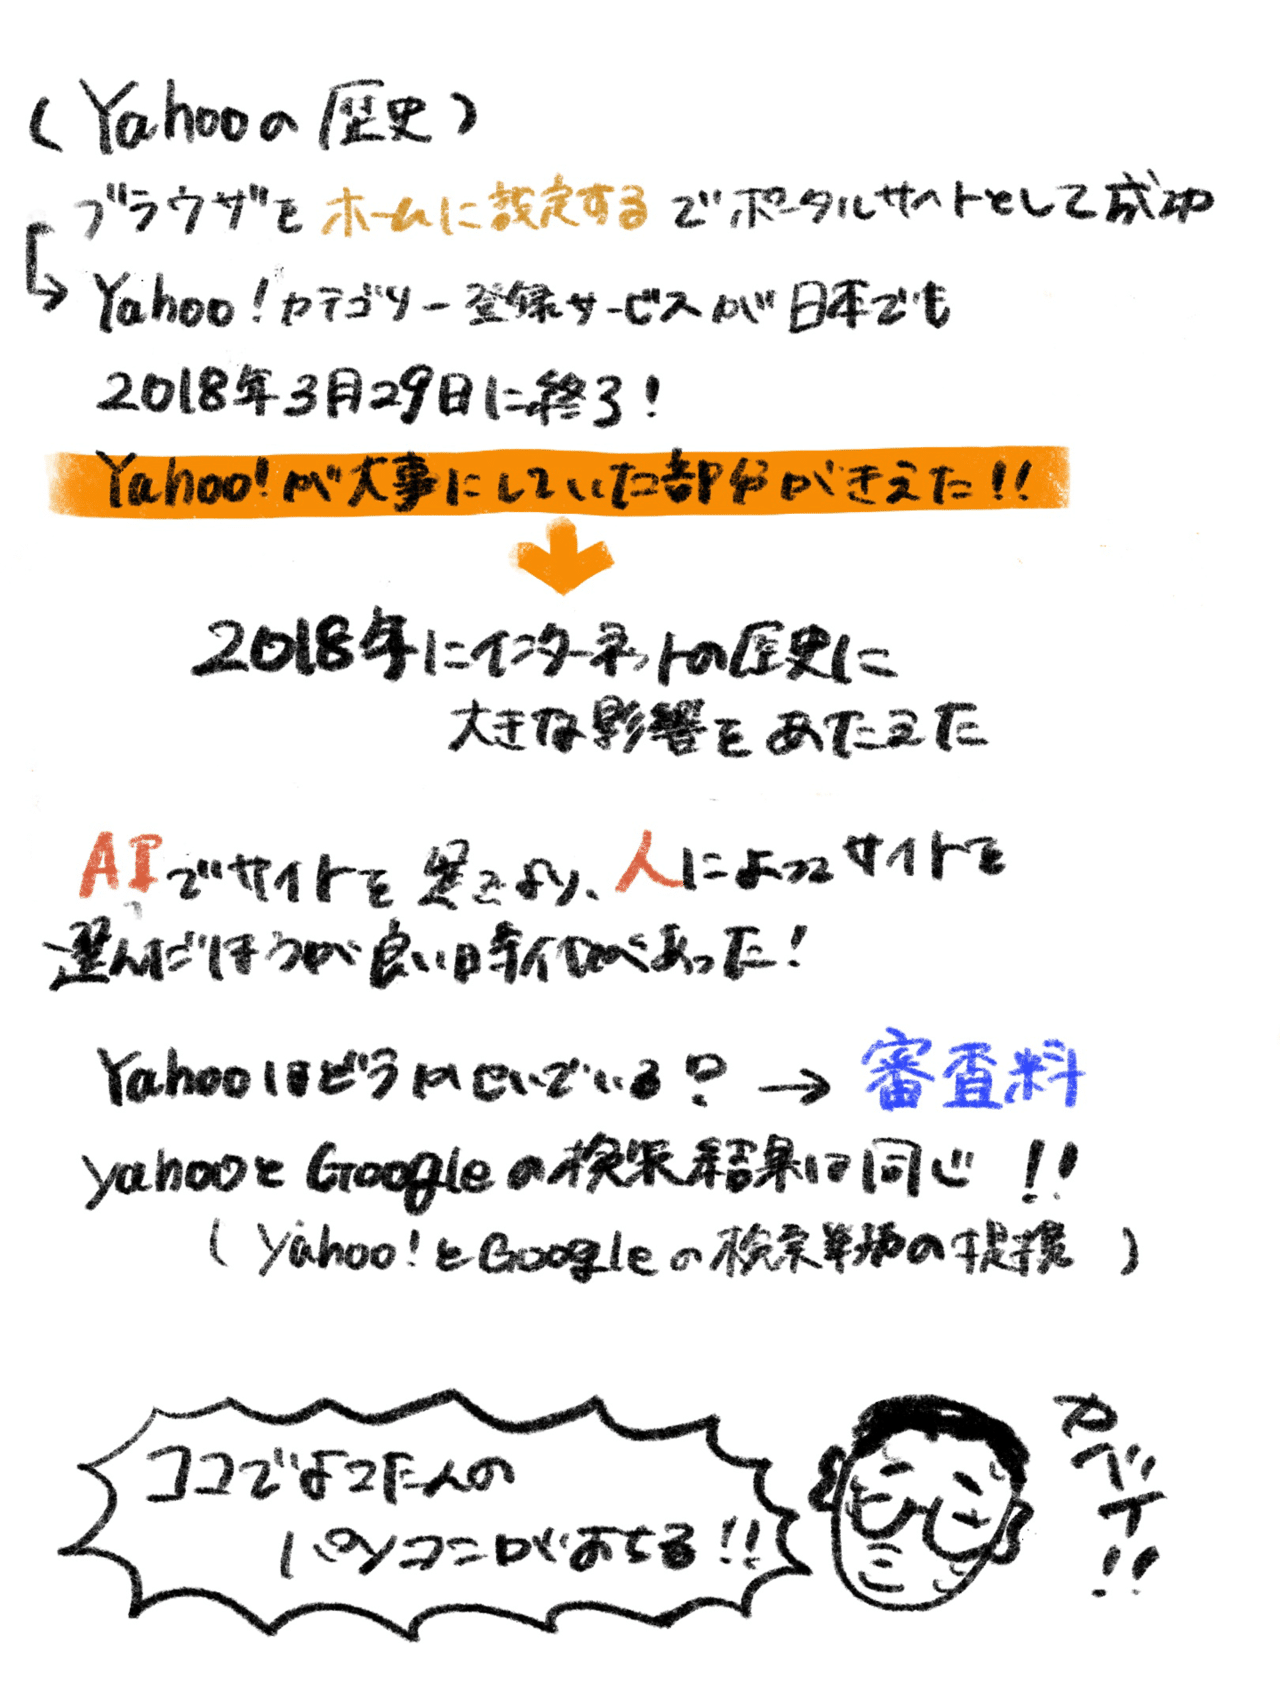 (Yahooの歴史)
ブラウザをホームに設定するでポータルサイトとして成功
Yahoo!カテゴリー登録サービスが日本でも
2018年3月29日に終了!
Yahoo!が大事にしていた部分がきえた!!
2018年にインターネットの歴史に
大きな影響をあたえた
AIでサイトを見るより、人によってサイトを
選んだほうが良い時代があった!
Yahooはどうかせいでいる?→審査料
yahooとGoogleの検索結果は同じ!!
(Yahoo!とGoogleの検索業務の提携)
ココでよってたんの
パソコンがおちる!!
ガベー!!